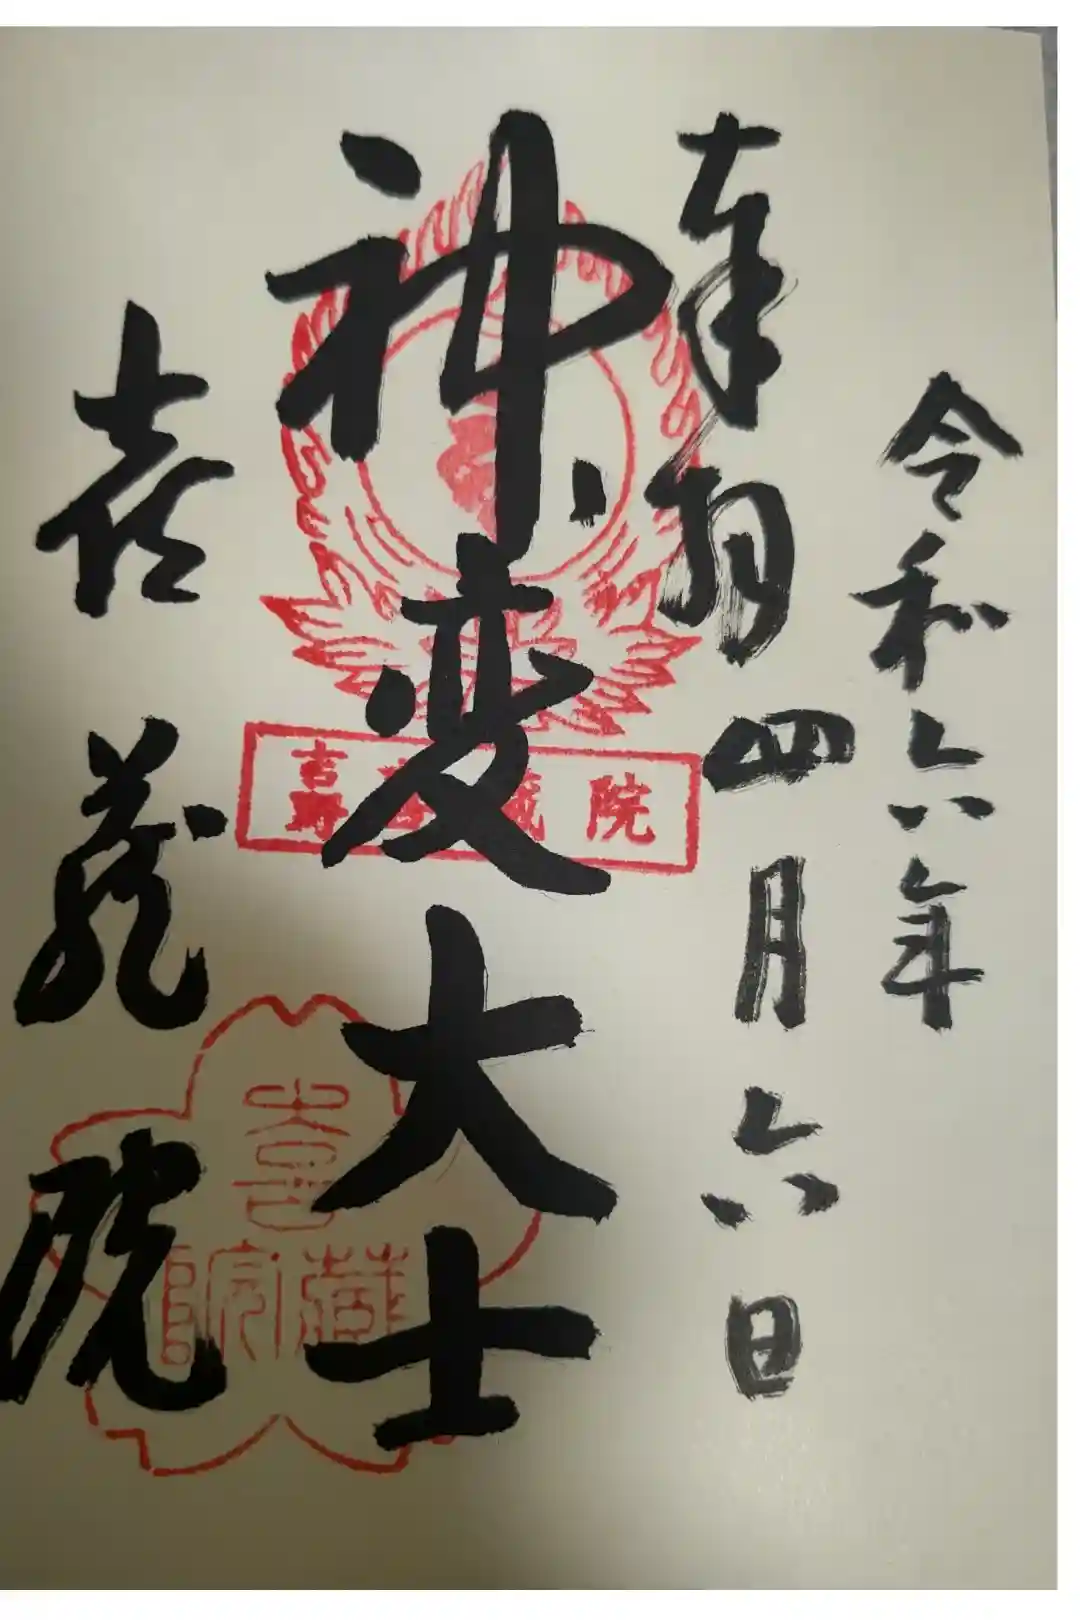 令和六年
奉拝 四月六日
神変大士
喜蔵院
吉野 喜蔵院
喜蔵院